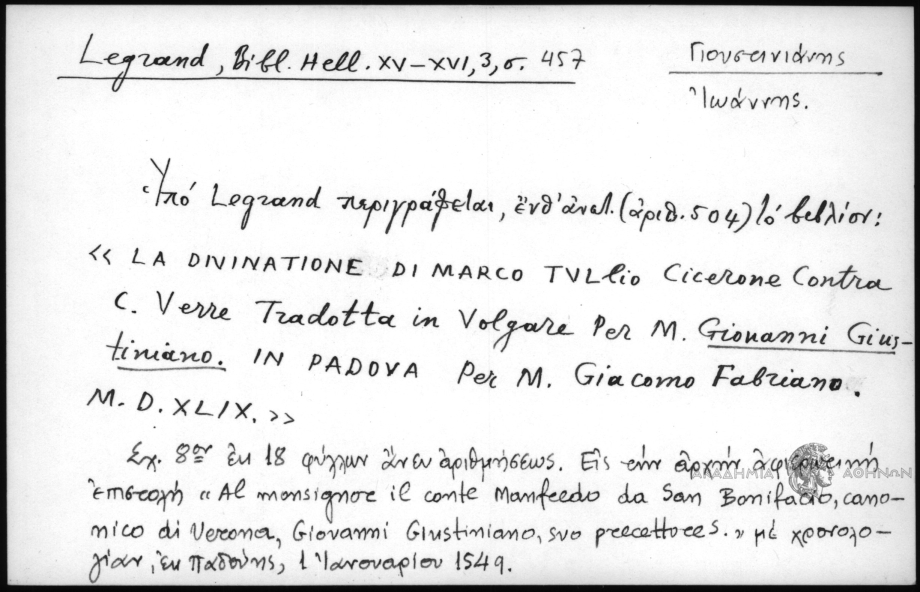 Legrand, Bibl. Hell. XV–XVI, 3, σ. 457
Γιουστινιάνης
Ἰωάννης.
Ὑπό Legrand περιγράφεται, ἔνθ' ἀνωτ. (ἀριθ. 504) τό βιβλίον:
« LA DIVINATIONE DI MARCO TVLlio Cicerone Contra
C. Verre Tradotta in Volgare Per M. Giouanni Gius-
tiniano. IN PADOVA Per M. Giacomo Fabriano.
M. D. XLIX. »
Σχ. 8ον ἐκ 18 φύλλων ἄνευ ἀριθμήσεως. Εἰς τήν ἀρχήν ἀφιερωτική
ἐπιστολή « Al monsignor il conte Manfredo da San Bonifacio, cano-
nico di Verona, Giovanni Giustiniano, svo precettores. » μέ χρονολο-
γίαν, ἐκ Παδούης, 1 Ἰανουαρίου 1549.
ΑΚΑΔΗΜΙΑ ΑΘΗΝΩΝ